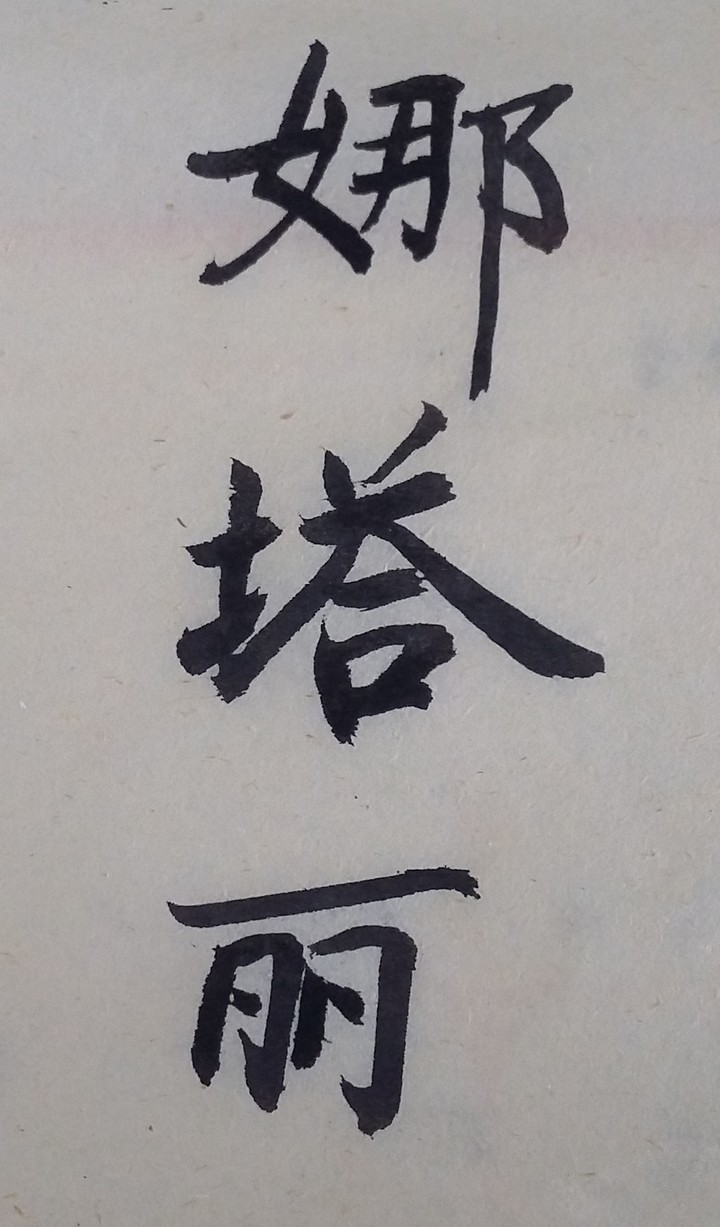 娜塔丽